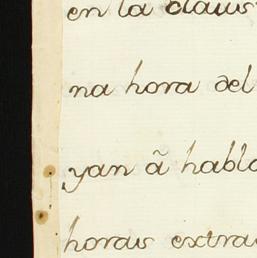 en la claus
na hora del
yan ã habla
horas extra